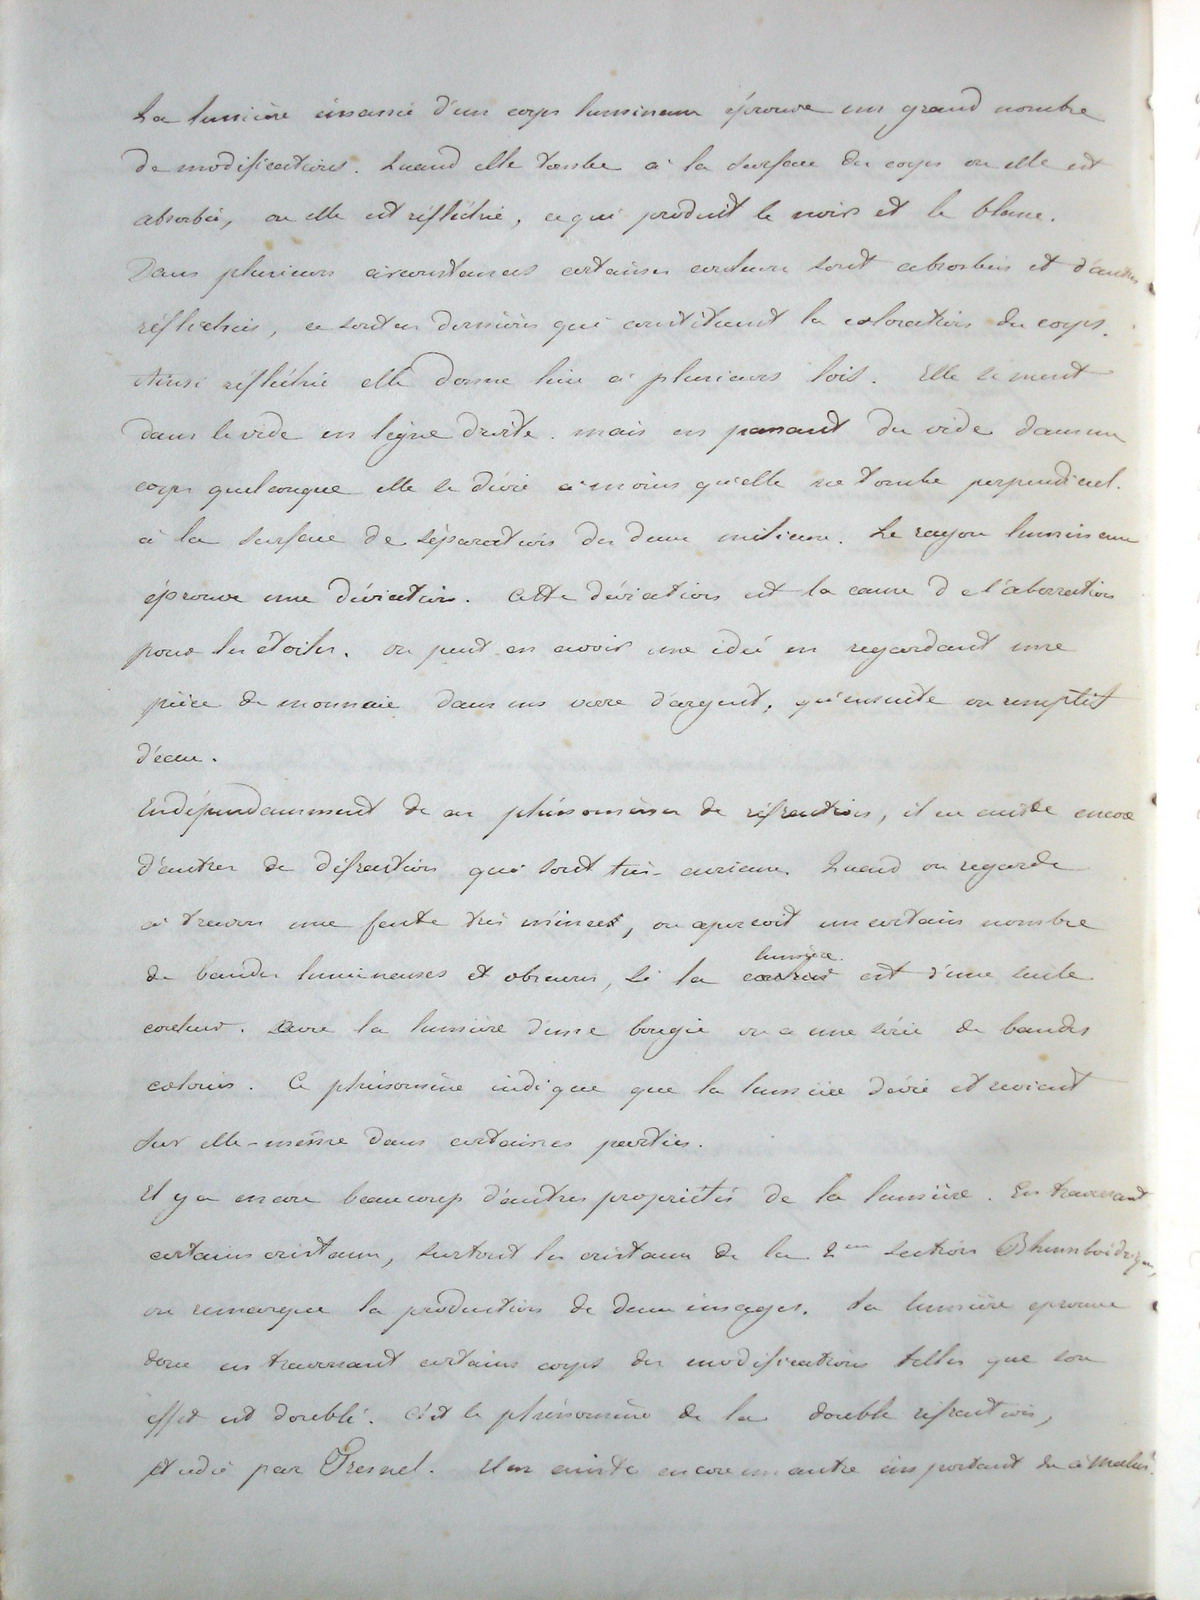 La lumière émanée d'un corps lumineux éprouve un grand nombre
de modifications. Quand elle tombe à la surface du corps ou elle est
absorbée, ou elle est réfléchie, ce qui produit le noir et le blanc.
Dans plusieurs circonstances certaines couleurs sont absorbées et d'autres
réfléchies, ce sont ces dernières qui constituent la coloration du corps.
Ainsi réfléchie elle donne lieu à plusieurs lois. Elle se meut
dans le vide en ligne droite. mais en passant du vide dans un
corps quelconque elle se dévie à moins qu'elle ne tombe perpendicul.
à la surface de séparation des deux milieux. Le rayon lumineux
éprouve une déviation. Cette déviation est la cause de l'aberration
pour les étoiles. on peut en avoir une idée en regardant une
pièce de monnaie dans un vase d'argent, qu'ensuite on remplit
d'eau.
Indépendamment de ces phénomènes de réfraction, il en existe encore
d'autres de difraction qui sont très-curieux. Quand on regarde
à travers une fente très mince, on aperçoit un certain nombre
lumière.
de bandes lumineuses et obscures, si la couleur est d'une seule
couleur. Avec la lumière d'une bougie on a une série de bandes
colorées. Ce phénomène indique que la lumière dévie et revient
sur elle-même dans certaines parties.
Il y a encore beaucoup d'autres propriétés de la lumière. En traversant
certains cristaux, surtout les cristaux de la 2me section Rhomboïdriques,
on remarque la production de deux images. La lumière éprouve
donc en traversant certains corps des modifications telles que son
effet est doublé. C'est le phénomène de la double réfraction,
étudié par Fresnel. Il en existe encore un autre important du à Malus.